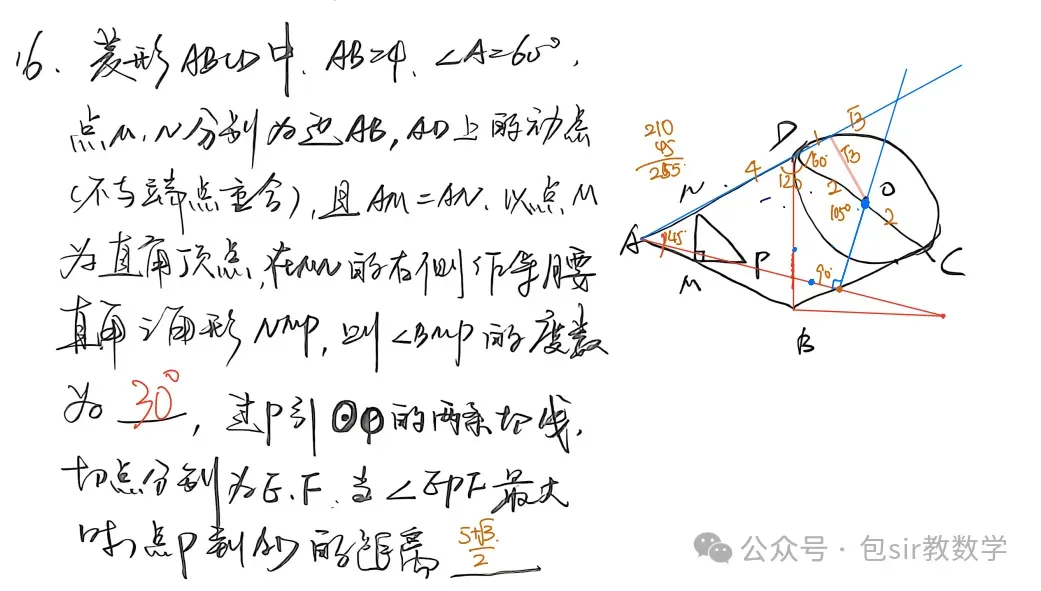 16. 菱形ABCD中. AB=4. ∠A=60°,
点M、N分别为边AB, AD上的动点
(不与端点重合), 且AM=AN. 以点M
为直角顶点, 在MN的右侧作等腰
直角三角形NMP, 则∠BMP的度数
为 30°, 过P引⊙O的两条切线,
切点分别为E、F. 当∠EPF最大
时, 点P到AD的距离 5+√3/2
210
45
255
D
1
√3
60°
√3
4
120
2
O
105°
2
N
A
45°
M
P
90°
C
B
公众号 · 包sir教数学